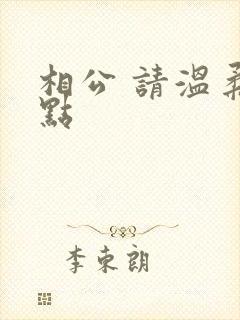 相公 請溫柔
點
李東朗